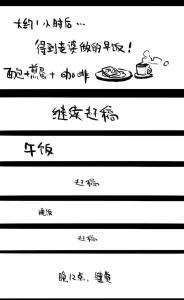 大约1小时后…
得到老婆做的早饭！
面包+煎蛋+咖啡
继续赶稿
午饭
赶稿
晚饭
赶稿
晚12点，睡觉